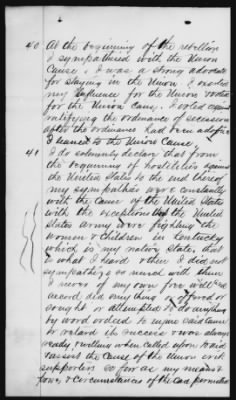 40 At the beginning of the rebellion
I sympathized with the Union
Cause, I was a strong advocate
for staying in the Union I exerted
my influence for the Union voted
for the Union Cause. I voted against
ratifying the ordinance of secession
after the ordinance had been adopted
I leaned to the Union Cause.
41 I do solemnly declare that from
the beginning of hostilities against
the United States to the end thereof
my sympathies were constantly
with the cause of the United States
with the exceptions that the United
States army were fighting the
women & children in Kentucky
which is my native State, that
is what I heard & then I did not
sympathize so much with them
I never of my own free will and
accord did anything or offered or
sought or attempted to do anything
by word or deed to injure said cause
or retard its success & was always
ready & willing when called upon to aid
& assist the Cause of the Union or its
supporters so far as my means &
power & circumstances of the case permitted